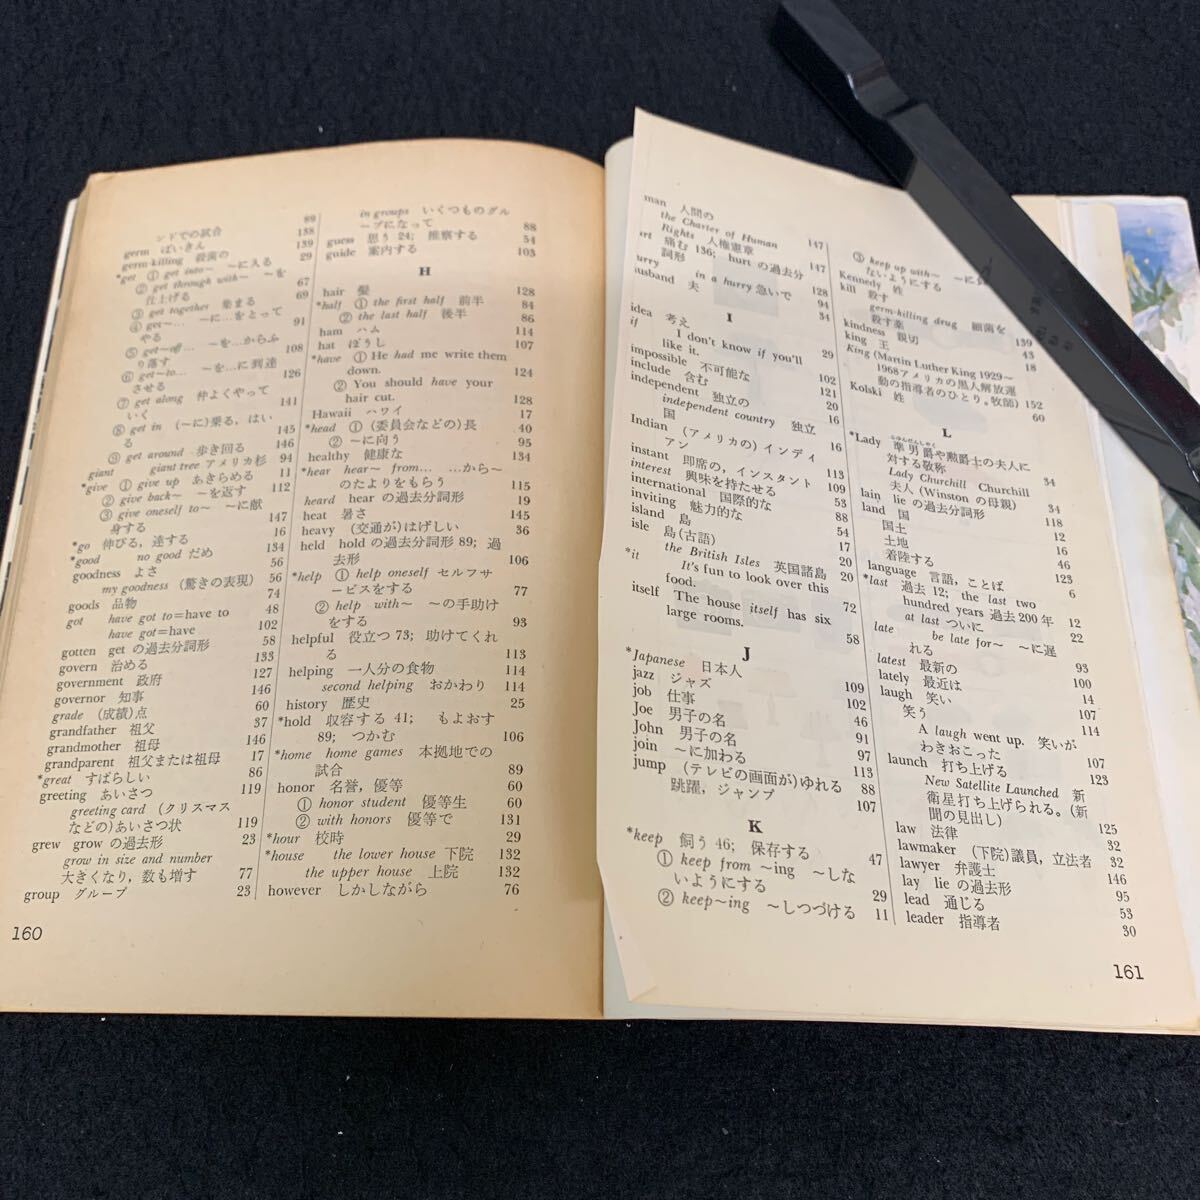 89
ンドでの試合 138
germ ばいきん 139
germ-killing 殺菌の 29
*get ① get into~ ~に入る
② get through with~ ~を
仕上げる 67
③ get together 集まる 69
④ get~… ~に…をとって
やる 91
⑤ get~ ~を…からふ
り落す 108
⑥ get~to… ~を…に到達
させる 126
⑦ get along 仲よくやって
いく 141
⑧ get in (~に)乗る, はい
る 145
⑨ get around 歩き回る 146
giant giant tree アメリカ杉 94
*give ① give up あきらめる 11
② give back~ ~を返す 112
③ give oneself to~ ~に献
身する 147
*go 伸びる, 達する 16
*good no good だめ 134
goodness よさ 56
my goodness (驚きの表現) 56
goods 品物 74
got have got to=have to 48
have got=have 102
gotten get の過去分詞形 58
govern 治める 133
government 政府 127
governor 知事 146
grade (成績)点 60
grandfather 祖父 37
grandmother 祖母 146
grandparent 祖父または祖母 17
*great すばらしい 86
greeting あいさつ 119
greeting card (クリスマス
などの)あいさつ状 119
grew grow の過去形 23
grow in size and number
大きくなり, 数も増す 77
group グループ 23
in groups いくつものグル
ープになって 88
guess 思う 24; 推察する 54
guide 案内する 103
H
hair 髪 128
*half ① the first half 前半 84
② the last half 後半 86
ham ハム 114
hat ぼうし 107
*have ① He had me write them
down. 124
② You should have your
hair cut. 128
Hawaii ハワイ 17
*head ① (委員会などの)長 40
② ~に向う 95
healthy 健康な 134
*hear hear~ from… …から~
のたよりをもらう 115
heard hear の過去分詞形 19
heat 暑さ 145
heavy (交通が)はげしい 36
held hold の過去分詞形 89; 過
去形 106
*help ① help oneself セルフサ
ービスをする 77
② help with~ ~の手助け
をする 93
helpful 役立つ 73; 助けてくれ
る 113
helping 一人分の食物 114
second helping おかわり 114
history 歴史 25
*hold 収容する 41; もよおす
89; つかむ 106
*home home games 本拠地での
試合 89
honor 名誉, 優等 60
① honor student 優等生 60
② with honors 優等で 131
*hour 校時 29
*house the lower house 下院 132
the upper house 上院 132
however しかしながら 76
160
man 人間の
the Charter of Human
Rights 人権憲章 147
urt 痛む 136; hurt の過去分
詞形 147
urry in a hurry 急いで 128
usband 夫 94
34
I
idea 考え
if I don't know if you'll
like it. 29
impossible 不可能な
include 含む 102
independent 独立の 121
independent country 独立 20
国 16
Indian (アメリカの) インディ
アン 16
instant 即席の, インスタント 113
interest 興味を持たせる 109
international 国際的な 53
inviting 魅力的な 88
island 島 54
isle 島(古語) 17
the British Isles 英国諸島 20
*it It's fun to look over this 20
food.
itself The house itself has six 72
large rooms.
58
J
*Japanese 日本人
jazz ジャズ 109
job 仕事 102
Joe 男子の名 46
John 男子の名 91
join ~に加わる 97
jump (テレビの画面が)ゆれる 113
跳躍, ジャンプ 88
107
K
*keep 飼う 46; 保存する 47
① keep from ~ing ~しな
いようにする 29
② keep~ing ~しつづける 11
③ keep up with~
ないようにする
Kennedy 姓
kill 殺す
germ-killing drug 細菌を
殺す薬 139
kindness 親切 43
king 王 18
King (Martin Luther King 1929~
1968アメリカの黒人解放運
動の指導者のひとり。牧師) 152
Kolski 姓 60
L
*Lady 準男爵や勲爵士の夫人に
対する敬称 34
Lady Churchill Churchill
夫人 (Winston の母親) 34
lain lie の過去分詞形 118
land 国 12
国土 16
土地 46
着陸する 123
language 言語, ことば 6
*last 過去 12; the last two
hundred years 過去200年 12
at last ついに 22
late be late for~ ~に遅
れる 93
latest 最新の 100
lately 最近は 14
laugh 笑い 107
笑う 114
A laugh went up. 笑いが
わきおこった 107
launch 打ち上げる 123
New Satellite Launched 新
衛星打ち上げられる。(新
聞の見出し) 125
law 法律 32
lawmaker (下院)議員, 立法者 32
lawyer 弁護士 146
lay lie の過去形 95
lead 通じる 53
leader 指導者 30
161